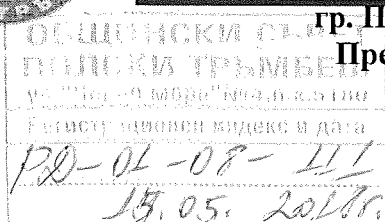 гр. П
Пре
ОБЩИНСКИ СЪВЕТ
ПОЛСКИ ТРЪМБЕШ
ул. "Черно море" №4, п.к. 5180
Регистрационен индекс и дата
РД-01-08-111
.05. 2018г